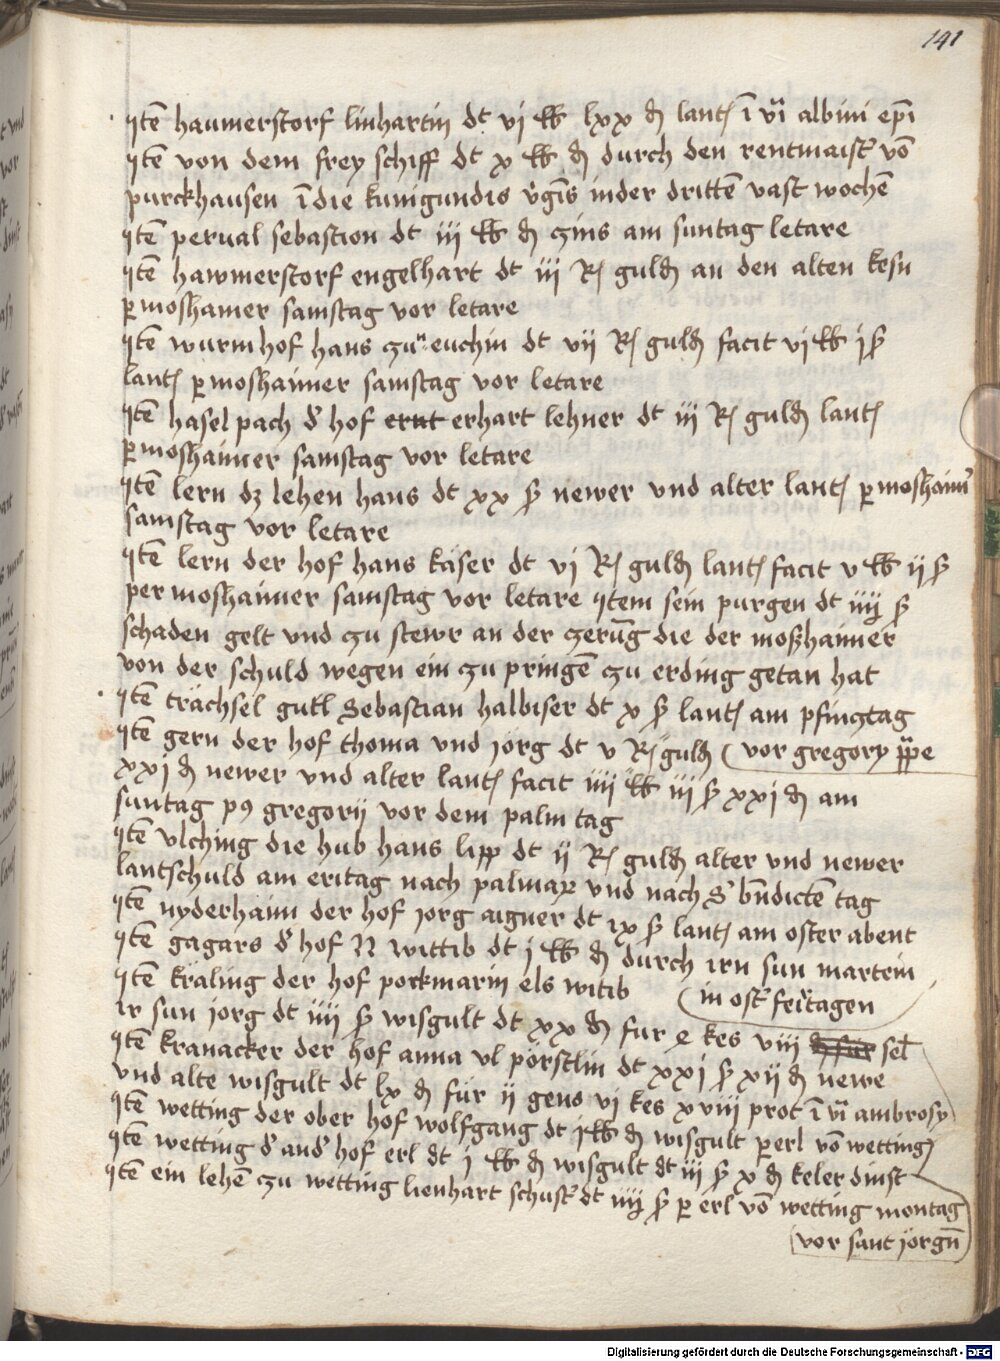 141
Itē haumerstorf linhartin dt vj ℔ lxx ₰ lant ī vi albini epī
Itē von dem frey schiff dt x ℔ ₰ durch den rentmaist vō
purckhausen ī die kunigundis vgīs in der drittē vast wochē
Itē perual sebastion dt iij ℔ ₰ zins am suntag letare
Itē hawmerstorf engelhart dt iij R guld an den alten kesn
p moshamer samstag vor letare
Itē wurmhof hans zu euchin dt vij R guld facit vj ℔ j ß
lant p moshaimer samstag vor letare
Itē hasel pach d hof ernt erhart lehner dt iij R guld lant
p moshaimer samstag vor letare
Itē lern dz lehen hans dt xx ß newer vnd alter lant p moshaim
samstag vor letare
Itē lern der hof hans käser dt vj R guld lant facit v ℔ ij ß
per moshaimer samstag vor letare Item sein purgen dt iiij ß
schaden gelt vnd zu stewr an der zerūg die der moßhaimer
von der schuld wegen ein zu pringē zu erding getan hat
Itē trächsel gutl Sebastian halbiser dt x ß lant am pfingtag
Itē gern der hof thoma vnd jorg dt v R guld ( vor gregory ppe
xxj ₰ newer vnd alter lant facit iiij ℔ iij ß xxj ₰ am
suntag p9 gregorij vor dem palm tag
Itē vlching die hub hans lipp dt ij R guld alter vnd newer
lantschuld am eritag nach palmar vnd nach S bndictē tag
Itē nyderhaim der hof jorg aigner dt ix ß lant am oster abent
Itē gagars d hof N wittib dt j ℔ ₰ durch irn sun martein
Itē kräling der hof pockmarin els witib ( in ost feirtagen
ir sun jorg dt iiij ß wisgult dt xx ₰ fur e kes viij ₰ für sel
Itē kranacker der hof anna vl pörstlin dt xxj ß xij ₰ newe
vnd alte wisgult dt lx ₰ für ij gens vj kes xviij prot ī vi ambrosy
Itē wetting der ober hof wolfgang dt j ℔ ₰ wisgult p erl vō wetting
Itē wetting d and hof erl dt j ℔ ₰ wisgult dt iij ß x ₰ keler dinst
Itē ein lehē zu wetting lienhart schust dt iiij ß p erl vō wetting montag
vor sant jorgn
Digitalisierung gefördert durch die Deutsche Forschungsgemeinschaft - DFG